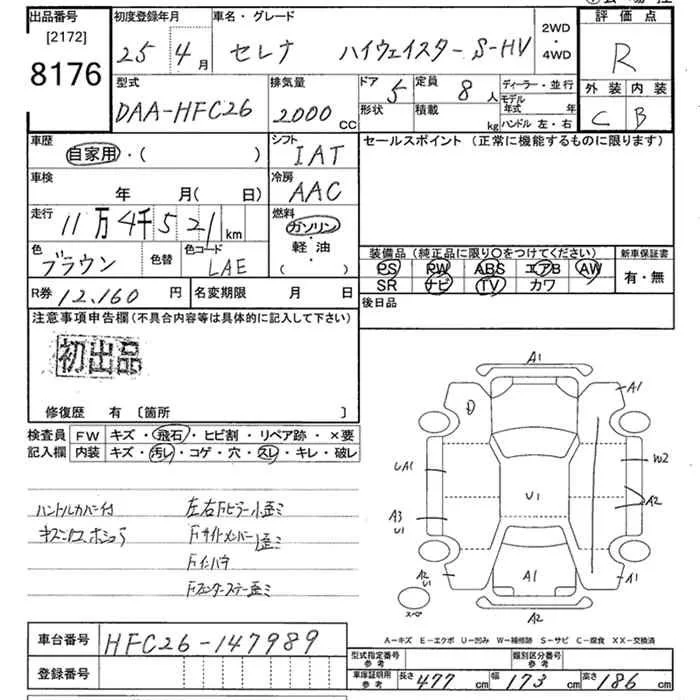 出品番号
[2172]
8176
初度登録年月
25年4月
車名・グレード
セレナ ハイウェイスター S-HV
2WD
・
4WD
評価点
R
外装 内装
C B
型式
DAA-HFC26
排気量
2000 CC
ドア 5
定員 8人
形状
積載 kg
ディーラー・並行
モデル年式 年
ハンドル 左・右
車歴
自家用・( )
シフト
IAT
セールスポイント (正常に機能するものに限ります)
車検
年 月(日)
冷房
AAC
走行 11万4千521 km
燃料
ガソリン
・
軽・油
( )
色
ブラウン
色替
色コード
LAE
装備品 (純正品に限り○をつけてください)
PS PW ABS エアB AW
SR ナビ TV カワ
新車保証書
有・無
R券 12,160円
名変期限 月 日
後日品
注意事項申告欄(不具合内容等は具体的に記入して下さい)
初出品
修復歴 有 [箇所 ]
検査員
記入欄
FW キズ・飛石・ヒビ割・リペア跡・×要
内装 キズ・汚レ・コゲ・穴・スレ・キレ・破レ
ハンドルカバー付
左右Fピラー小歪ミ
Fサイドメンバー歪ミ
Fインパネ
A1
A1
UA1
W2
U1
A2
A3
U1
A2
U1
A1
A1
スペア
A2
A-キズ E-エクボ U-凹み W-補修跡 S-サビ C-腐食 XX-交換済
車台番号 HFC26-147989
登録番号
型式指定番号
参考
類別区分番号
参考
車庫証明用
参考
長さ 477 cm
幅 173 cm
高さ 186 cm